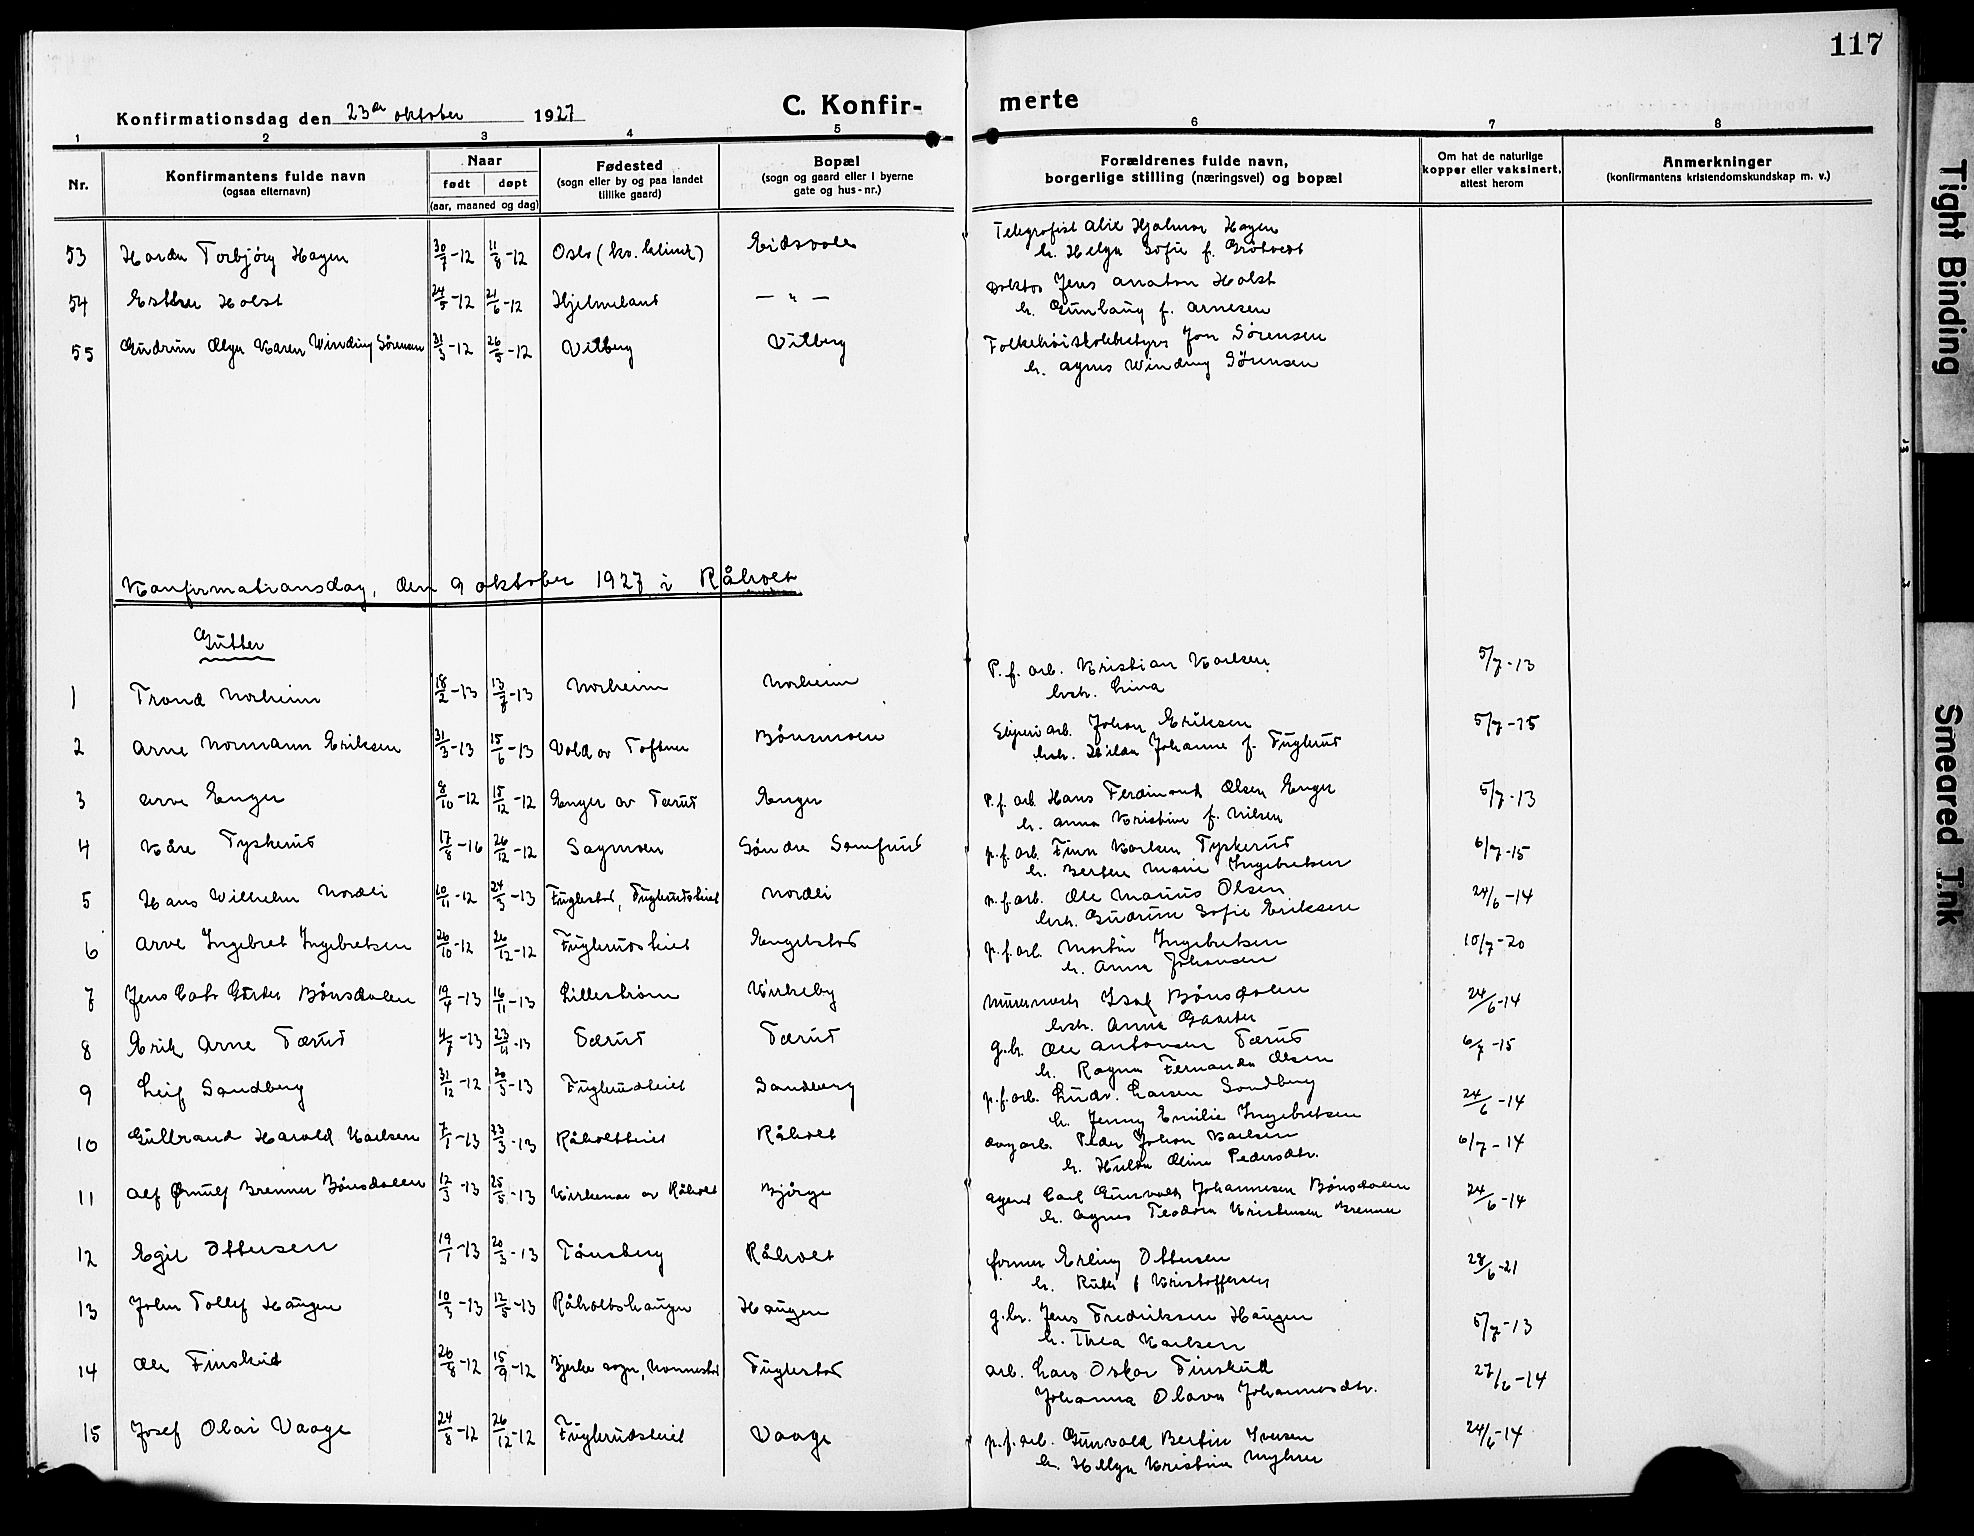 117
Konfirmationsdag den 23de oktober 1927
C. Konfir-merte
1 2 3 4 5 6 7 8
Nr.
Konfirmantens fulde navn
(ogsaa efternavn)
Naar
født døpt
(aar, maaned og dag)
Fødested
(sogn eller by og paa landet
tillike gaard)
Bopæl
(sogn og gaard eller i byerne
gate og hus-nr.)
Forældrenes fulde navn,
borgerlige stilling (næringsvei) og bopæl
Om hat de naturlige
kopper eller vaksinert,
attest herom
Anmerkninger
(konfirmantens kristendomskundskap m. v.)
53 Torbjörg Hagen 30/7-12 11/8-12 Oslo (kv. klinik) Eidsvoll Telegrafist Alić Hjalmar Hagen
h. Helga Sofie f.
54 Esther Holst 24/5-12 21/6-12 Hjelmeland — " — Doktor Jens Anaton Holst
h. Gunlaug f. Arnesen
55 Gudrun Olga Karen Winding Sørensen 31/3-12 26/5-12 Vilberg Vilberg Folkehöiskolebestyrer Jon Sörensen
h. Agnes Winding Sörensen
Konfirmationsdag, den 9 oktober 1927 i Råholt
Gutter
1 Trond Norheim 18/2-13 13/7-13 Norheim Norheim P. f. arb. Kristian Karlsen 5/7-13
hstr. Lina
2 Arne Normann Eriksen 31/3-13 15/6-13 Vold av Toftner Bönsmoen arb. Johan Eriksen 5/7-15
hstr. Hilda Johanne f. Fuglerud
3 Arve Enger 8/10-12 15/12-12 Enger av Tærud Enger P. f. arb. Hans Ferdinand Olsen Enger 5/7-13
h. Anna Kristine f. Nilsen
4 Kåre Tyskerud 17/8-16 26/12-12 Sagmoen Söndre p. f. arb. Finn Karlsen Tyskerud 6/7-15
h. Berthe Marie Ingebretsen
5 Hans Wilhelm Nordli 10/11-12 24/3-13 Fuglestad, Fuglerudseiet Nordli p. f. arb. Ole Marius Olsen 24/6-14
hstr. Gudrun Sofie Eriksen
6 Arve Ingebret Ingebretsen 26/10-12 26/12-12 Fuglerudseiet Engelstad p. f. arb. Martin Ingebretsen 10/7-20
h. Anna Johansen
7 Jens Bönsdalen 19/4-13 16/11-13 Lilleström Kirkeby Isak Bönsdalen 24/6-14
hstr. Anna Gaarder
8 Erik Arne Tærud 4/7-13 23/11-13 Tærud Tærud g.br. Ole Antonsen Tærud 6/7-15
h. Ragna Fernanda Olsen
9 Leif Sandberg 31/12-12 20/5-13 Fuglerudseiet Sandberg p. f. arb. Ludv. Larsen Sandberg 24/6-14
h. Jenny Emilie Ingebretsen
10 Gulbrand Harald Karlsen 7/1-13 23/3-13 Råholteiet Råholt dagarb. Peder Johan Karlsen 6/7-14
h. Hulda Oline Pedersdtr.
11 Alf Ørnulf Brenner Bönsdalen 12/3-13 25/5-13 Kirkemoe av Råholt Bjørge agent Carl Gunvald Johannesen Bönsdalen 24/6-14
h. Agnes Teodora Kristensen Brenner
12 Egil Ottersen 19/1-13 20/3-13 Tönsberg Råholt former Erling Ottersen 28/6-21
h. Ruth f Kristoffersen
13 John Tollef Haugen 10/3-13 12/5-13 Råholtshaugen Haugen g.br. Jens Fredriksen Haugen 5/7-13
h. Thea Karlsen
14 Ole Finskud 26/8-12 15/9-12 Bjerke sogn, Nannestad Fuglestad arb. Lars Oskar Finskud 27/6-14
Johanna Olava Johannesdtr.
15 Josef Olai Vaage 24/8-12 26/12-12 Fuglerudseiet Vaage p. f. arb. Gunvald Bertin Iversen 24/6-14
h. Helga Kristine Myhrer
Tight Binding
Smeared Ink